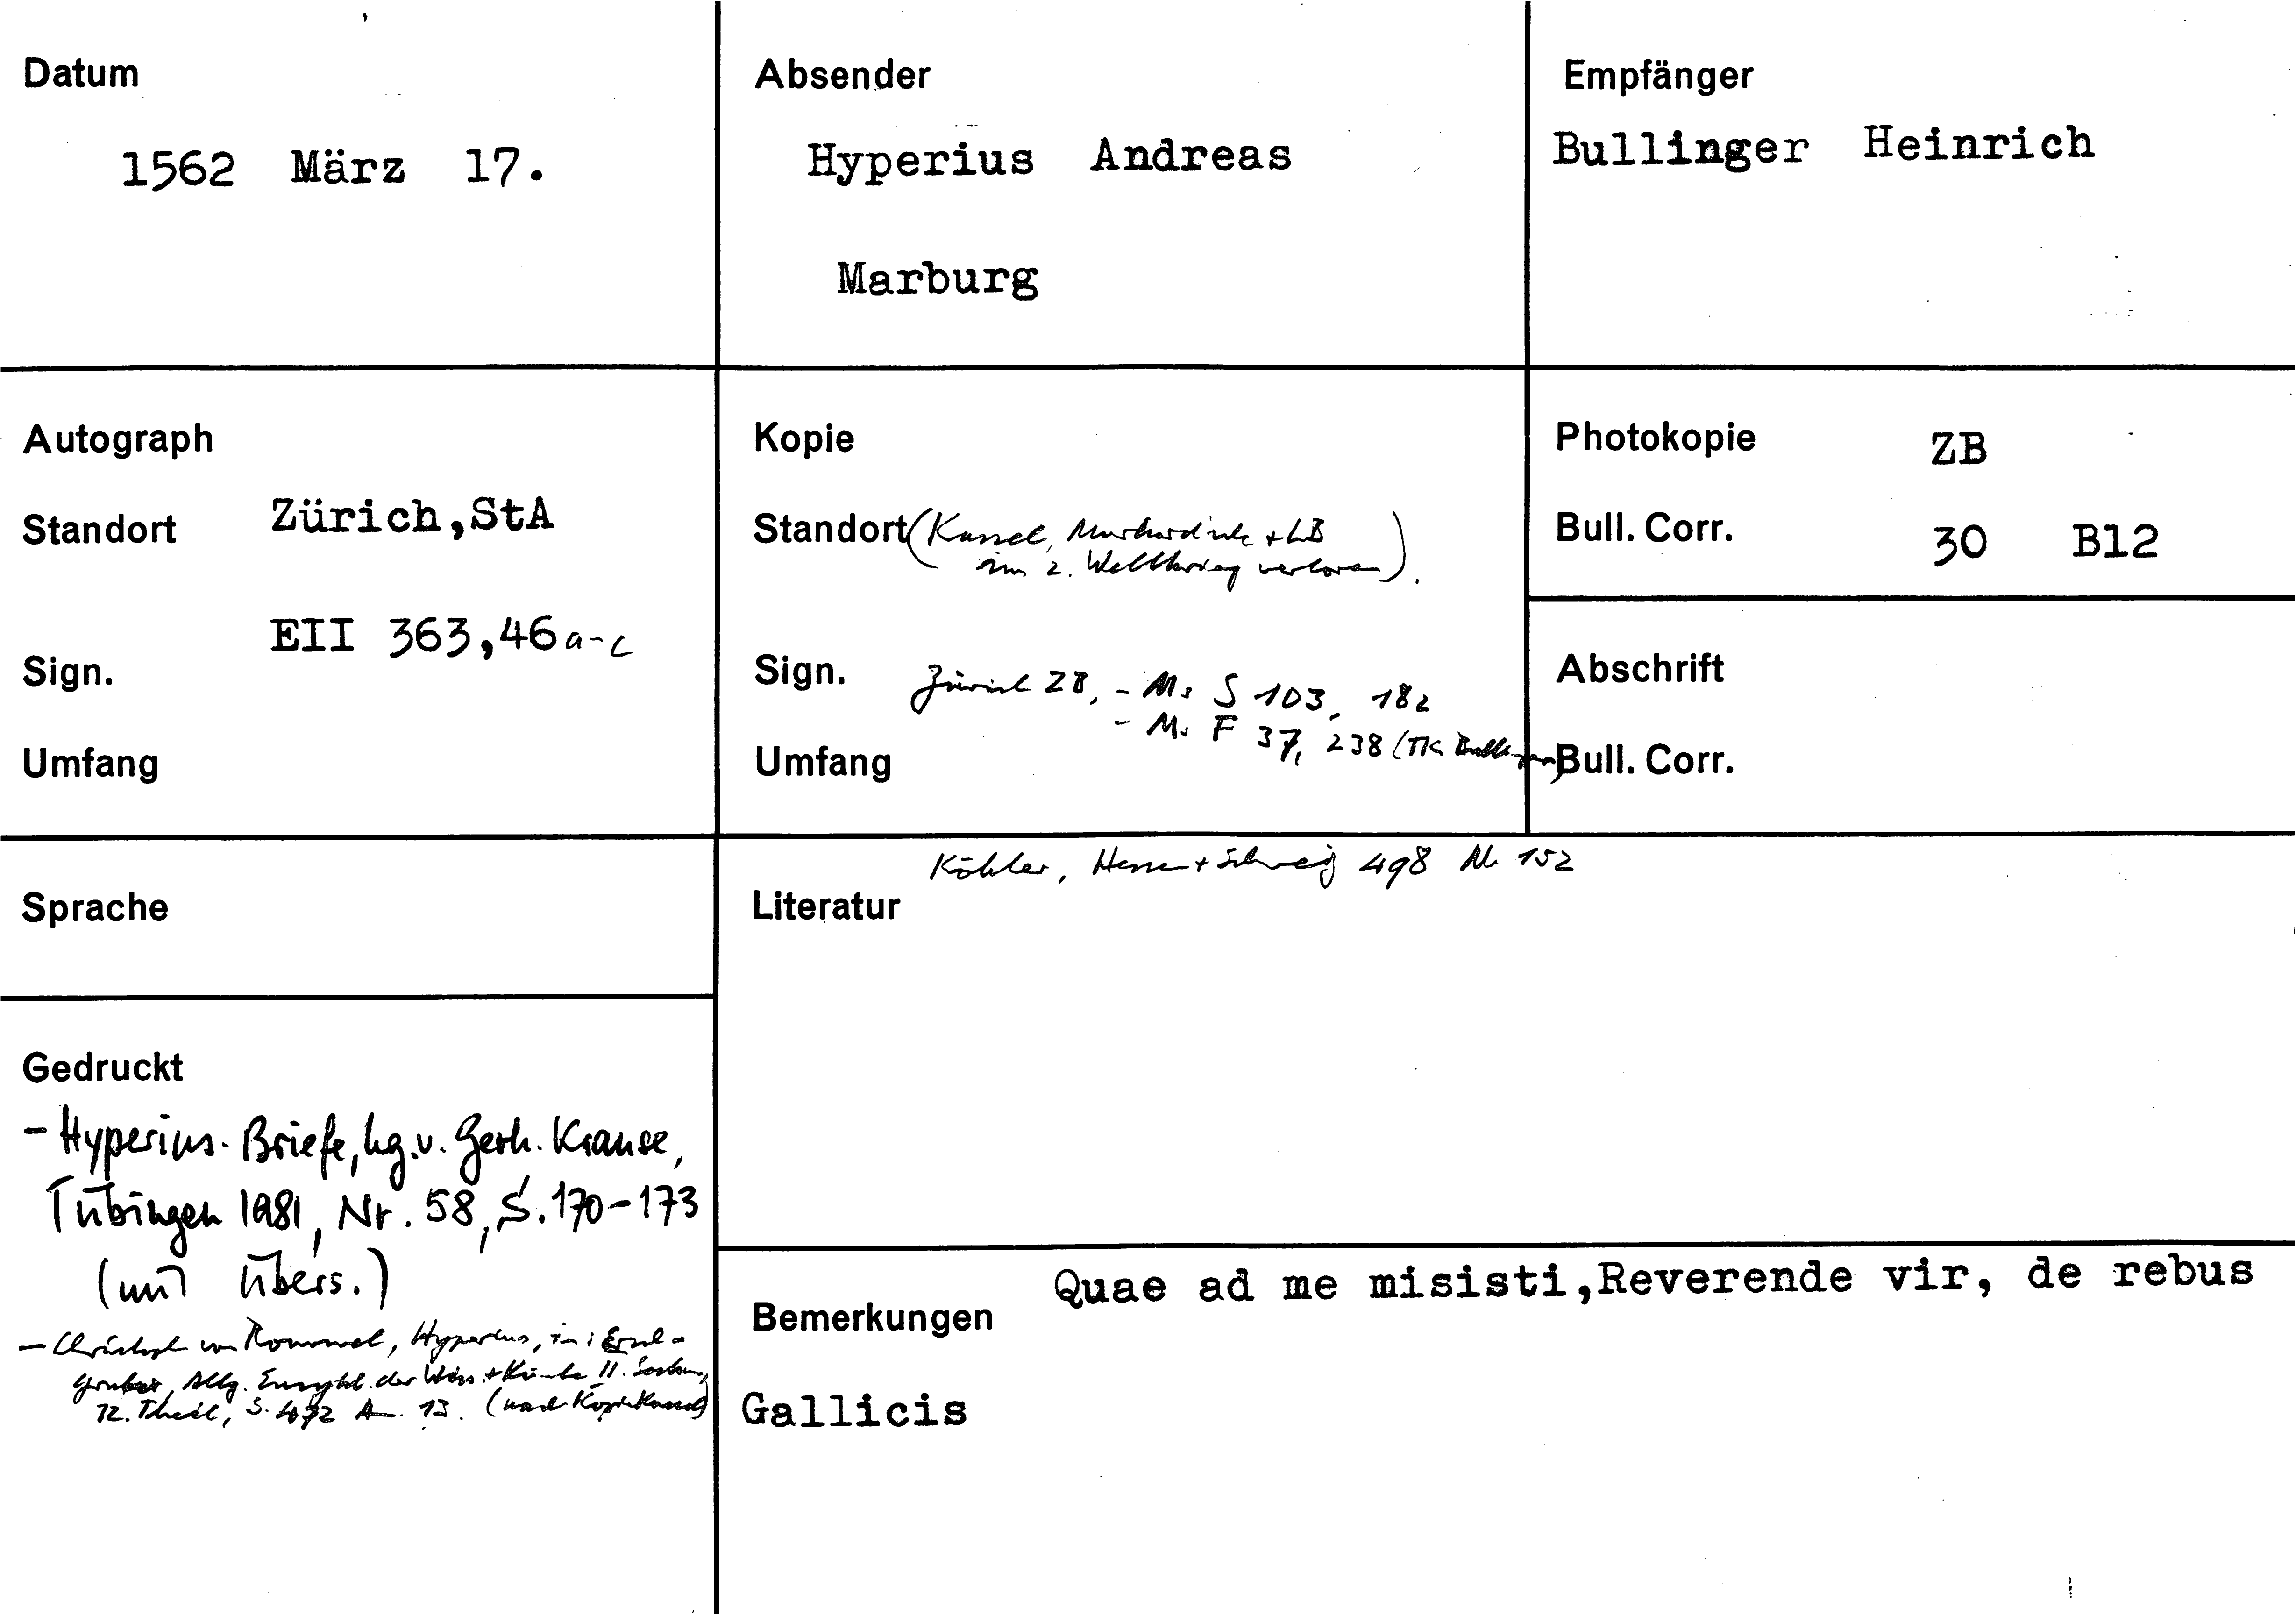 Datum
1562 März 17.
Absender
Hyperius Andreas
Marburg
Empfänger
Bullinger Heinrich
Autograph
Standort Zürich,StA
Sign. EII 363,46a-c
Umfang
Kopie
Standort (Kassel, Murhardsche + LB
im 2. Weltkrieg verloren).
Sign. Zürich ZB, - Ms S 103, 182
- Ms F 37, 238 (TK Bullinger)
Umfang
Photokopie ZB
Bull. Corr. 30 B12
Abschrift
Bull. Corr.
Sprache
Literatur
Köhler, Hessen + Schweiz 498 Nr 152
Gedruckt
- Hyperius-Briefe, hg. v. Gerh. Krause,
Tübingen 1981, Nr. 58, S. 170-173
(mit Übers.)
- Christoph von Rommel, Hyperius, in: Ersch-
Gruber, Allg. Enzykl. der Wiss. + Künste II. Section,
12. Theil, S. 492 A. 13. (nach Kopie Kassel)
Bemerkungen
Quae ad me misisti,Reverende vir, de rebus
Gallicis